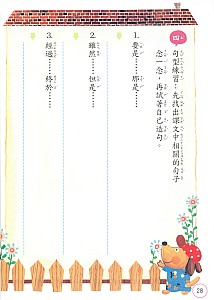 四、句型練習：先找出課文中相關的句子
念一念，再試著自己造句。
1. 要是……那是……
2. 雖然……但是……
3. 經過……終於……
28